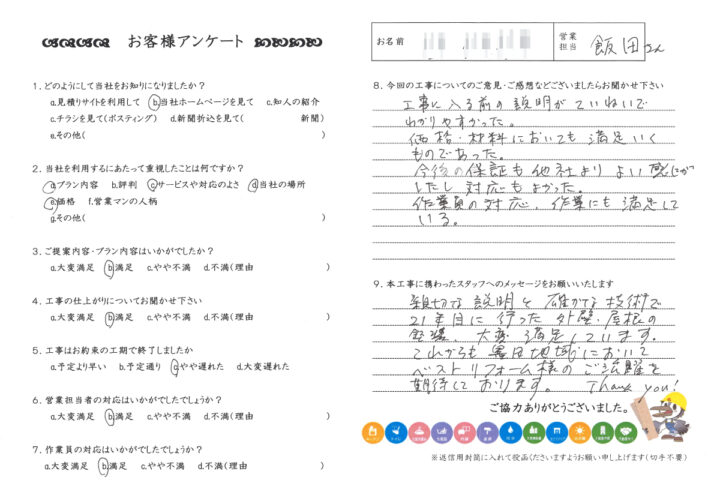 お客様アンケート
1. どのようにして当社をお知りになりましたか?
a.見積りサイトを利用して b.当社ホームページを見て c.知人の紹介
c.チラシを見て(ポスティング) d.新聞折込を見て( 新聞)
e.その他( )
2. 当社を利用するにあたって重視したことは何ですか?
a.プラン内容 b.評判 c.サービスや対応のよさ d.当社の場所
e.価格 f.営業マンの人柄
g.その他( )
3. ご提案内容・プラン内容はいかがでしたか?
a.大変満足 b.満足 c.やや不満 d.不満(理由 )
4. 工事の仕上がりについてお聞かせ下さい
a.大変満足 b.満足 c.やや不満 d.不満(理由 )
5. 工事はお約束の工期で終了しましたか
a.予定より早い b.予定通り c.やや遅れた d.大変遅れた
6. 営業担当者の対応はいかがでしたでしょうか?
a.大変満足 b.満足 c.やや不満 d.不満(理由 )
7. 作業員の対応はいかがでしたでしょうか?
a.大変満足 b.満足 c.やや不満 d.不満(理由 )
お名前
営業担当 飯田さん
8. 今回の工事についてのご意見・ご感想などございましたらお聞かせ下さい
工事に入る前の説明がていねいで
わかりやすかった。
価格・材料においても満足いく
ものであった。
今後の保証も他社よりよい感じが
したし対応もよかった。
作業員の対応、作業にも満足して
いる。
9. 本工事に携わったスタッフへのメッセージをお願いいたします
親切な説明と確かな技術で
21年目に行った外壁・屋根の
塗装、大変満足しています。
これからも 地域において
ベストリフォーム様のご活躍を
期待しております。 Thank you!
ご協力ありがとうございました。
※返信用封筒に入れて投函くださいますようお願い申し上げます(切手不要)